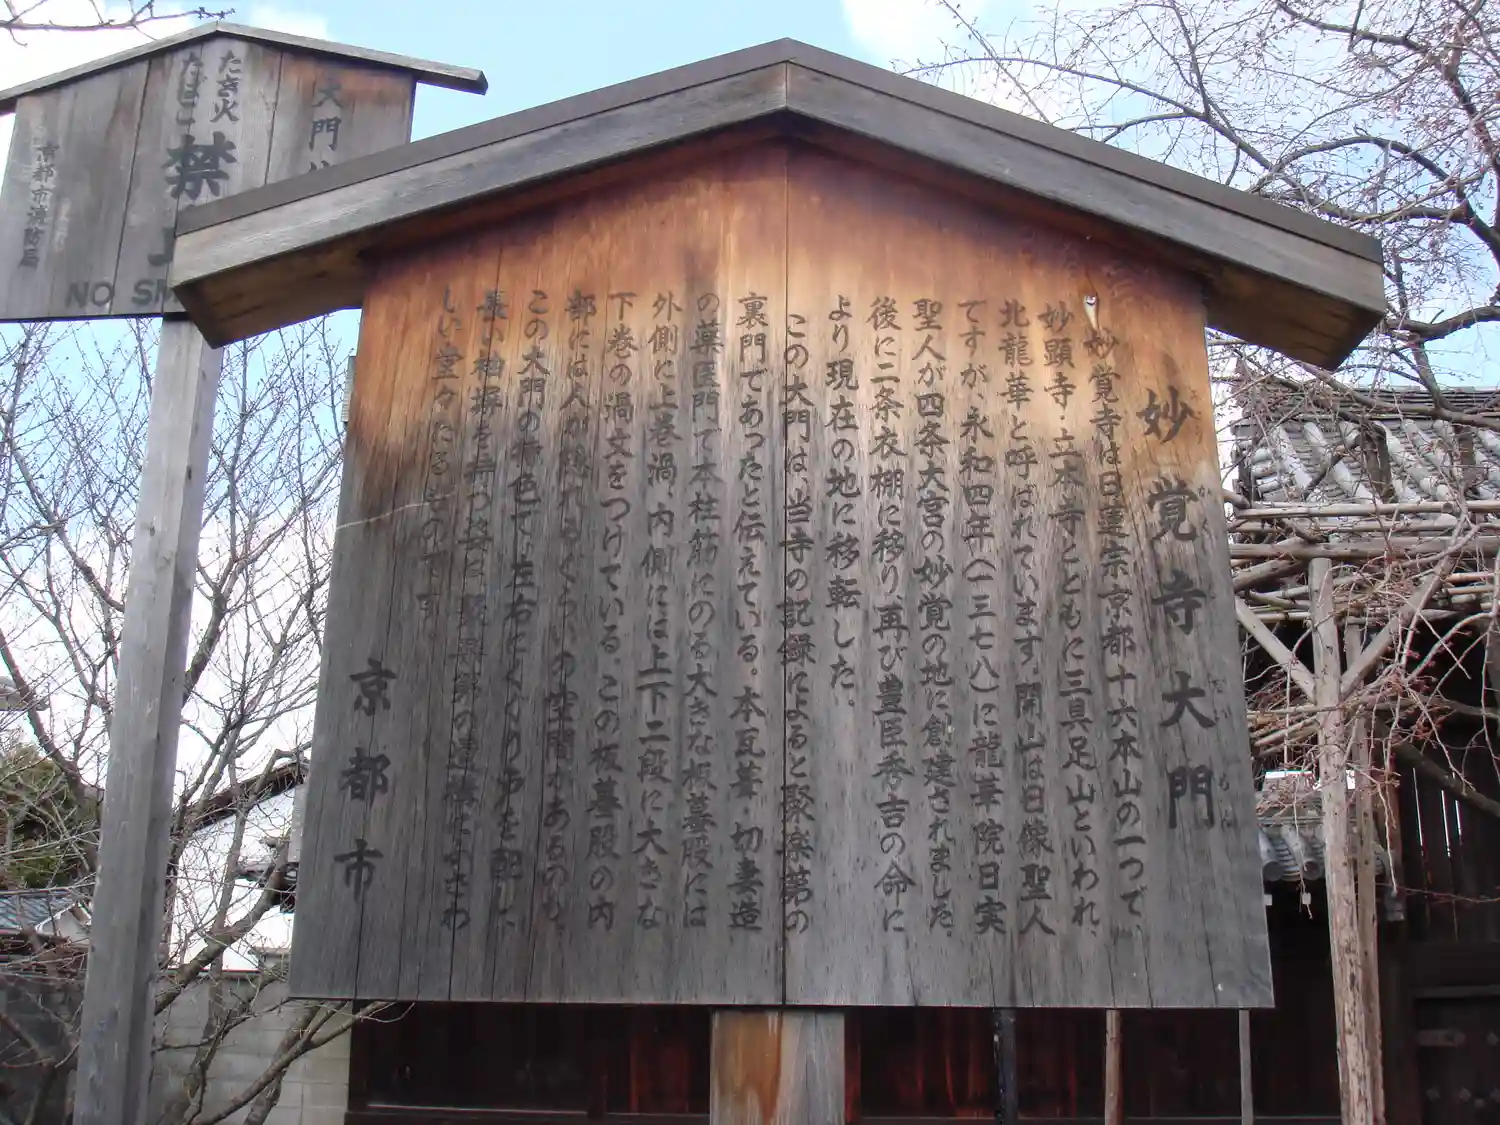 妙覚寺大門
みょうかくじだいもん
妙覚寺は日蓮宗京都十六本山の一つで、
妙顕寺・立本寺とともに三具足山といわれ、
北龍華と呼ばれています。開山は日像聖人
ですが、永和四年(一三七八)に龍華院日実
聖人が四条大宮の妙覚の地に創建されました。
後に二条衣棚に移り、再び豊臣秀吉の命に
より現在の地に移転した。
この大門は、当寺の記録によると聚楽第の
裏門であったと伝えている。本瓦葺・切妻造
の薬医門で本柱筋にのる大きな板蟇股には
外側に上巻渦、内側には上下二段に大きな
下巻の渦文をつけている。この板蟇股の内
部には人が隠れるぐらいの空間があるのも、
この大門の特色で左右にくぐり戸を配し、
長い袖塀を持つ姿は聚楽第の遺構にふさわ
しい堂々たるものです。
京都市
大門
たき火
たばこ
禁
京都市消防局
NO SM